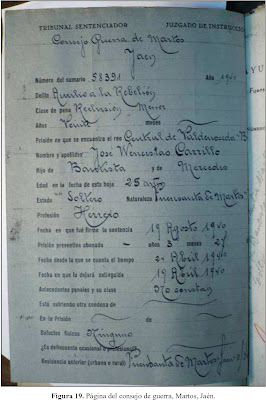 TRIBUNAL SENTENCIADOR JUZGADO DE INSTRUCCIÓN
Consejo Guerra de Martos
Jaen
Número del sumario 58391 Año 1940
Delito Auxilio a la Rebelión
Clase de pena Reclusión Menor
Años Veinte meses
Prisión en que se encuentra el reo Central de Valdenoceda-B
Nombre y apellidos Jose Wenceslao Carrillo
Hijo de Bautista y de Mercedes
Edad en fecha de esta hoja 25 años
Estado Soltero Naturaleza Fuensanta de Martos
Profesión Herrero
Fecha en que fué firme la sentencia 19 Agosto 1940
Prisión preventiva abonada años 3 meses 27
Fecha desde la que se cuenta el tiempo Abril 1940
Fecha en que la dejará extinguida 19 Abril 19
Antecedentes penales y su clase No constan
Está sufriendo otra condena de
En la Prisión de
Defectos físicos Ninguno
¿Es delincuente ocasional o profesional?
Residencia anterior (urbana o rural) Fuensanta de Martos
Figura 19. Página del consejo de guerra, Martos, Jaén.